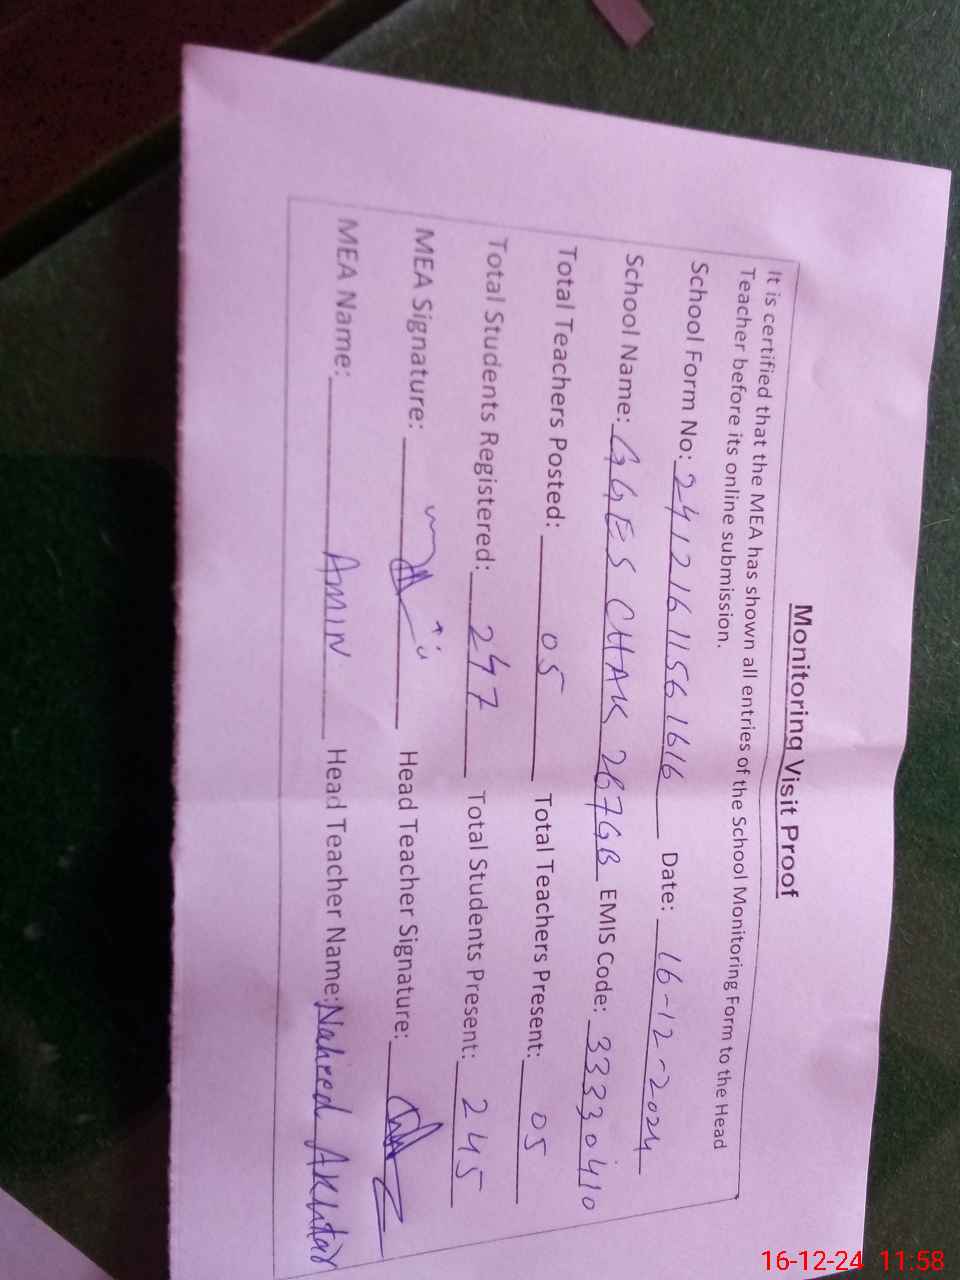 Monitoring Visit Proof
It is certified that the MEA has shown all entries of the School Monitoring Form to the Head
Teacher before its online submission.
School Form No: 24121611561616 Date: 16-12-2024
School Name: GGES CHAK 267GB EMIS Code: 33330410
Total Teachers Posted: 05 Total Teachers Present: 05
Total Students Registered: 247 Total Students Present: 245
MEA Signature: Head Teacher Signature:
MEA Name: AMIN Head Teacher Name: Naheed Akhtar
16-12-24 11:58